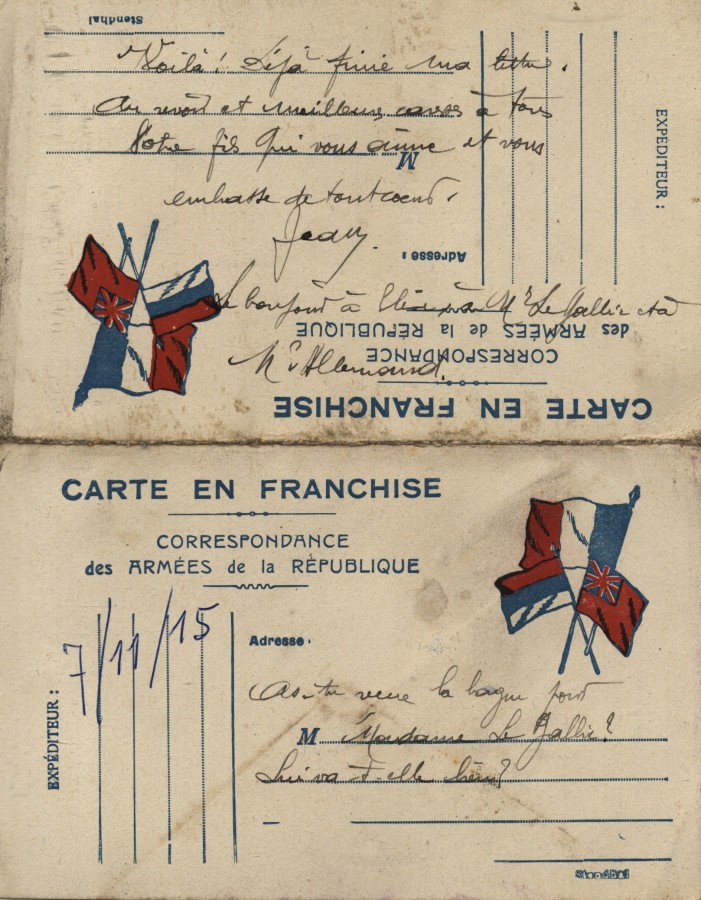 Voilà! Déjà finie ma lettre.
Au revoir et meilleures caresses à tous
Votre fils qui vous aime et vous
embrasse de tout coeur.
Jean.
Le bonjour à M. Le Gallic et à
M. Allemand.
Stendhal
M
Adresse :
EXPÉDITEUR :
des ARMÉES de la RÉPUBLIQUE
CORRESPONDANCE
CARTE EN FRANCHISE
CARTE EN FRANCHISE
CORRESPONDANCE
des ARMÉES de la RÉPUBLIQUE
7/11/15
EXPÉDITEUR :
Adresse :
As-tu reçue la bague pour
M Madame Le Gallic?
Lui va-t-elle bien?
Stendhal